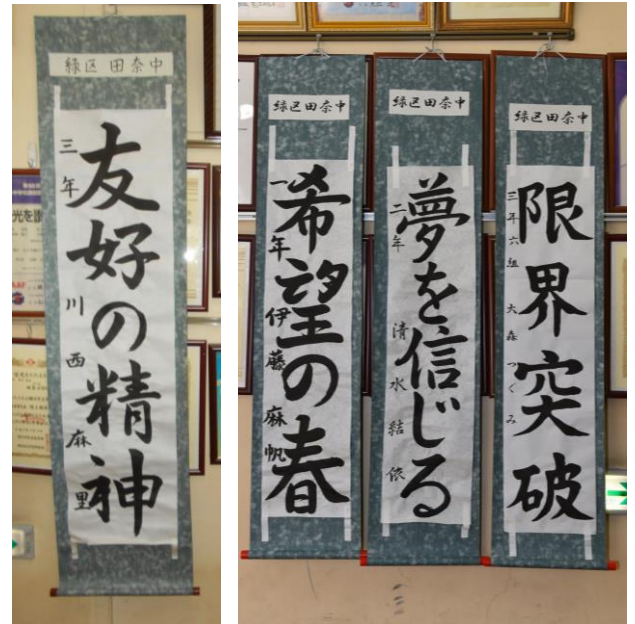 緑区田奈中
友好の精神
三年 川西麻里
緑区田奈中
希望の春
一年 伊藤麻帆
緑区田奈中
夢を信じる
二年 清水結依
緑区田奈中
限界突破
三年六組 大森つぐみ